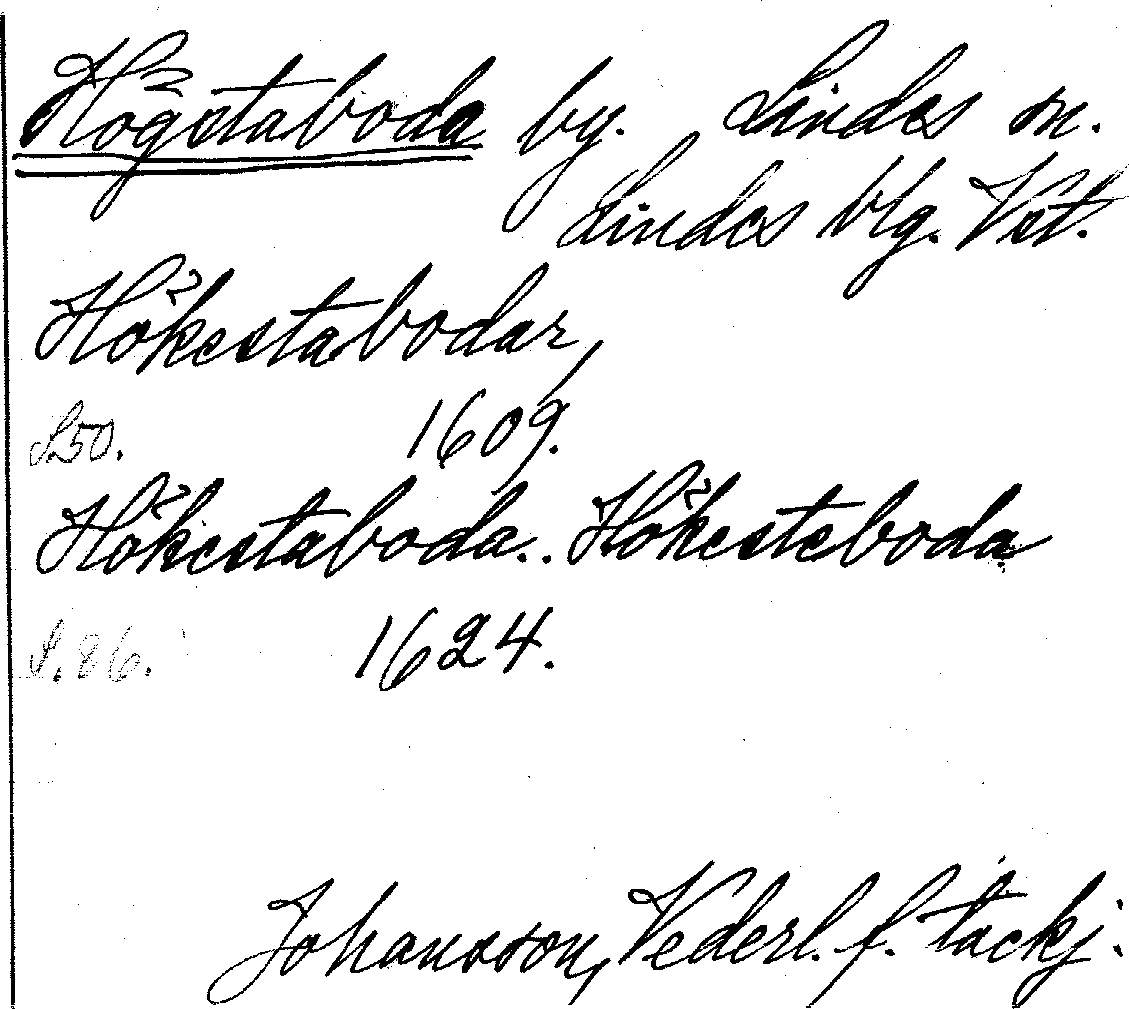 Högstaboda by. Lindes sn.
Lindes blg. Vstl.
Hökestabodar,
S50. 1609.
Hökestaboda.. Hökesteboda
S. 86. 1624.
Johansson, Vederl. f. tackj.